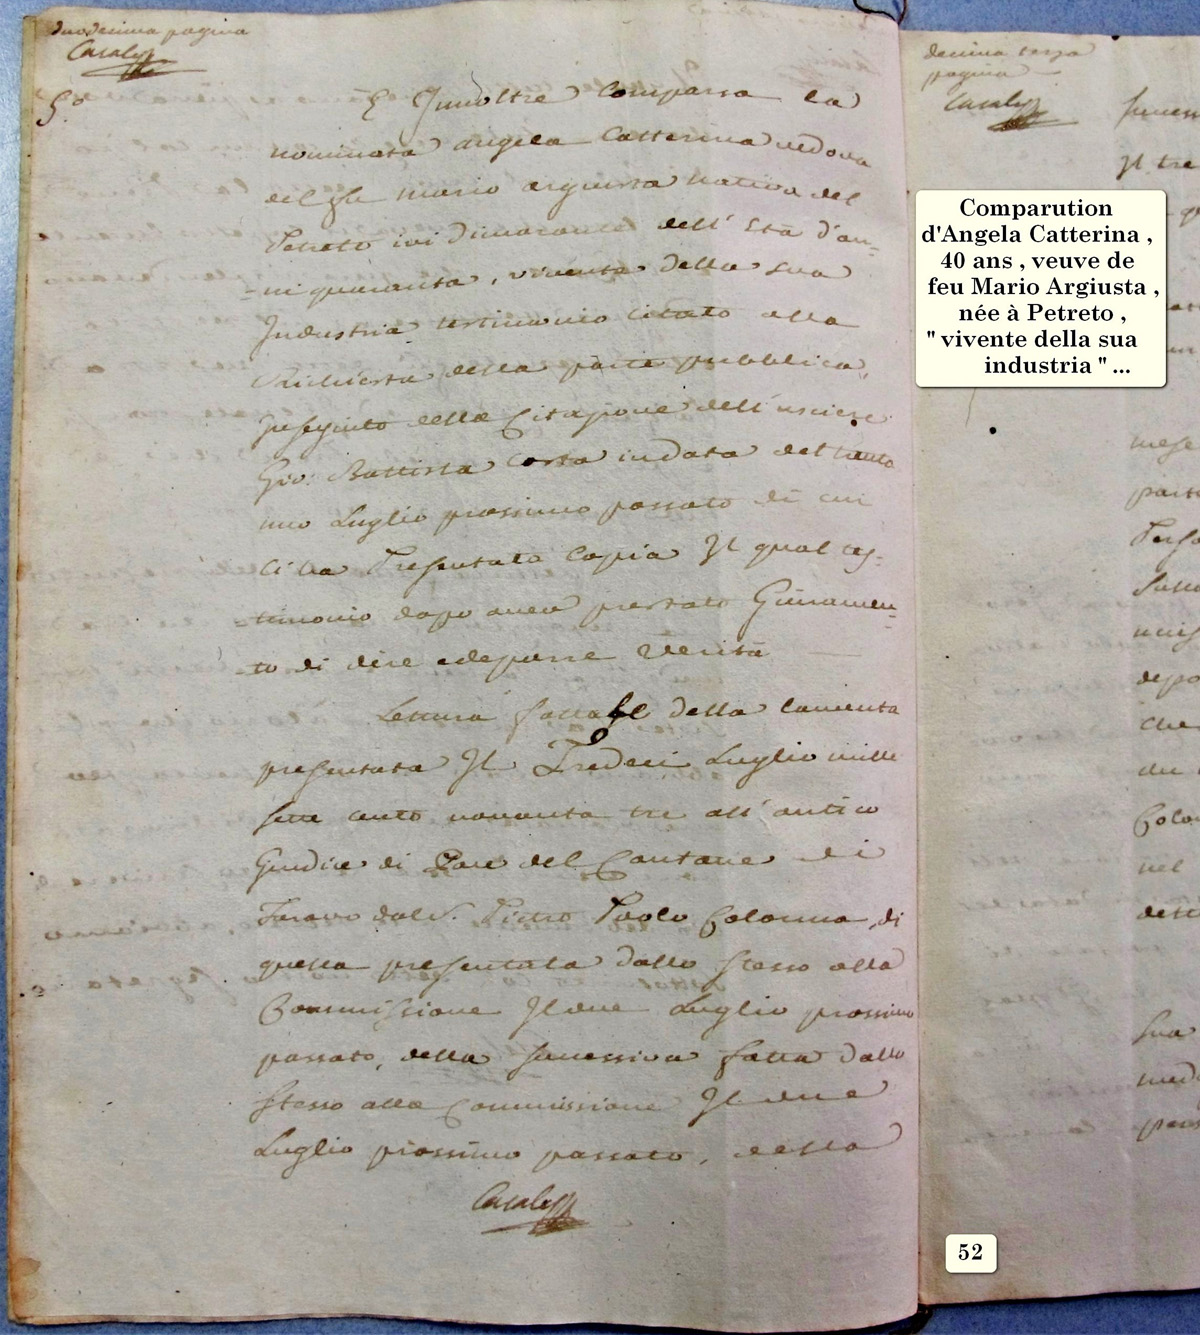 duodecima pagina
Casalta
5°
È Innoltre comparsa la
nominata Angela Catterina vedova
del fu Mario Argiusta nativa del
Petreto ivi dimorante dell'età d'an=
ni quaranta, vivente della sua
Industria testimonio citato alla
Richiesta della parte pubblica,
in seguito della Citazione dell'usciere
Gio: Battista Costa in data del trenta
uno Luglio prossimo passato di cui
ci ha Presentato copia Il qual tes=
=timonio dopo aver prestato Giuramen=
=to di dire e deporre Verità
Lettura fattale della lamenta
presentata Il Tredeci Luglio mille
sette cento novanta tre all'antico
Giudice di Pace del Cantone di
Taravo dal C. Pietro Paolo Colonna, di
quella presentata dallo stesso alla
Commissione Il due Luglio prossimo
passato, della successiva fatta dallo
stesso alla Commissione Il due
Luglio prossimo passato, della
Casalta
decima terza
pagina
Casalta
Il tre
mese
part
depo
che
Colo
nel
sua
Comparution
d'Angela Catterina ,
40 ans , veuve de
feu Mario Argiusta ,
née à Petreto ,
" vivente della sua
industria " ...
52